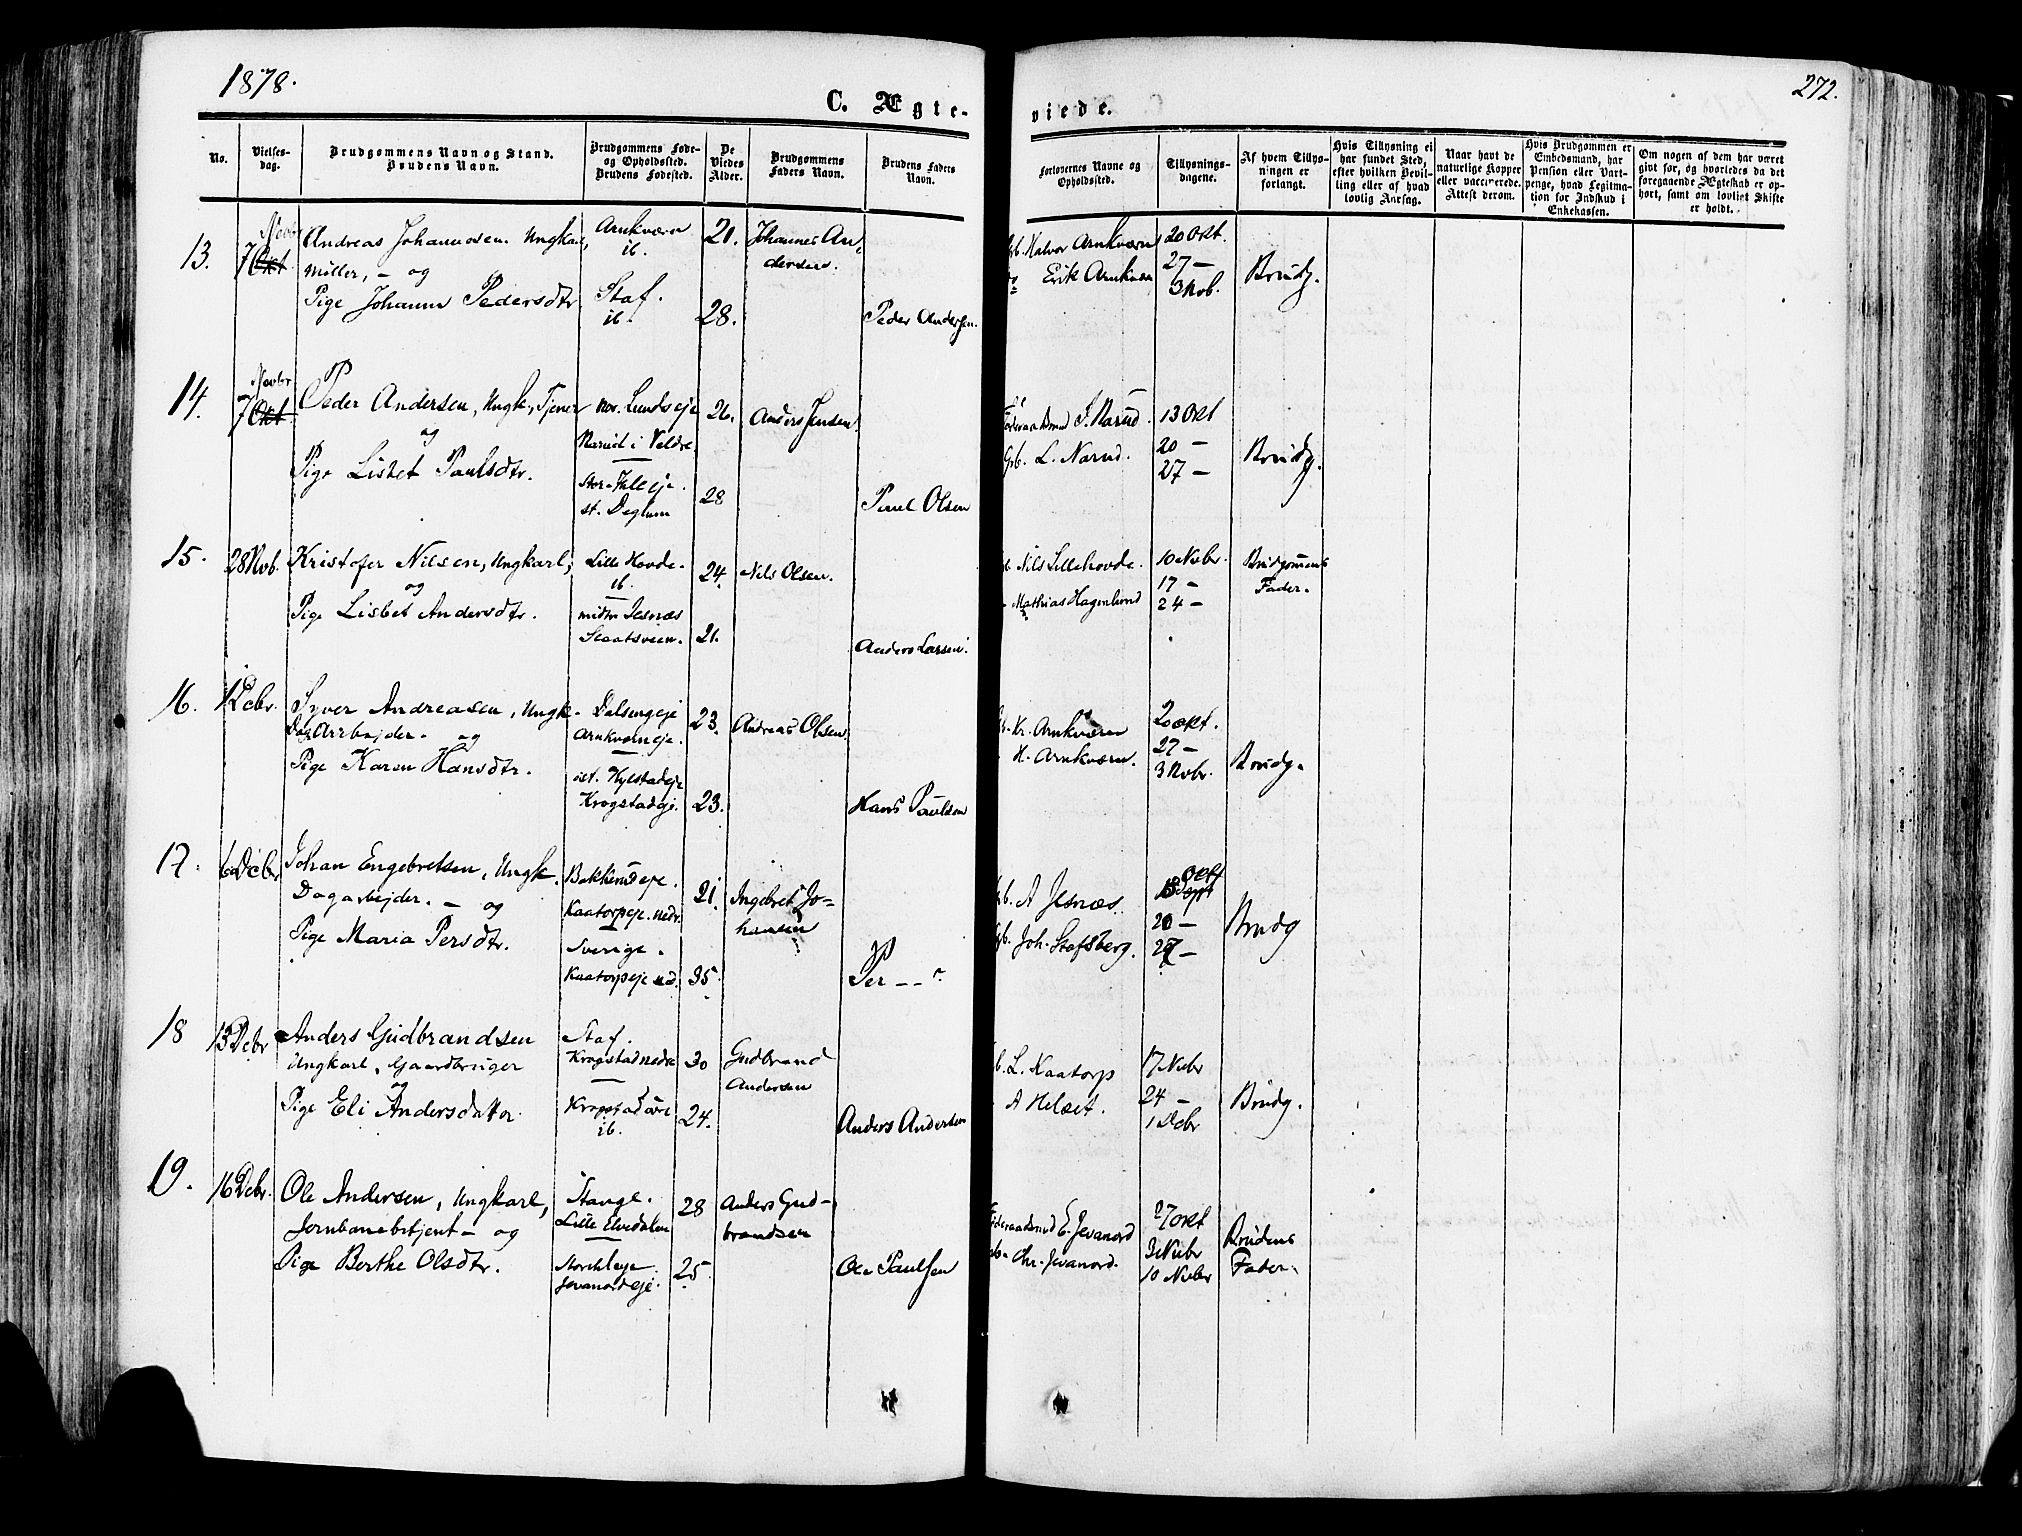 1878.
272.
C. Ægte-
viede.
No.
Vielses-
dag.
Brudgommens Navn og Stand.
Brudens Navn.
Brudgommens Føde-
og Opholdssted.
Brudens Fødested.
De
Viedes
Alder.
Brudgommens
Faders Navn.
Brudens Faders
Navn.
Forlovernes Navne og
Opholdssted.
Tillysnings-
dagene.
Af hvem Tillys-
ningen er
forlangt.
Hvis Tillysning ei
har fundet Sted,
efter hvilken Bevil-
ling eller af hvad
lovlig Aarsag.
Naar havt de
naturlige Kopper
eller vaccinerede.
Attest derom.
Hvis Brudgommen er
Embedsmand, har
Pension eller Vart-
penge, hvad Legitima-
tion for Indskud i
Enkekassen.
Om nogen af dem har været
givt før, og hvorledes da det
foregaaende Ægteskab er op-
hørt, samt om lovligt Skifte
er holdt.
13.
Novbr
7 Okt.
Andreas Johannesen. Ungkarl,
Møller, – og
Pige Johanne Pedersdtr
Arnkværn
ib.
Staf.
ib.
21.
28.
Johannes An-
dersen.
Peder Andersen.
Gb. Halvor Arnkværn
do Erik Arnkværn
20 Okt.
27 –
3 Nvb.
Brudg.
14.
Novbr
7 Okt
Peder Andersen, Ungk., Tjener
og
Pige Lisbet Paulsdtr.
nor. Lundseje
Narud i Veldre
st. Deglum
26.
28
Anders Jensen
Paul Olsen
Føderaadsmd J. Narud.
Gb. L. Narud.
13 Okt
20 –
27 –
Brudg.
15.
28 Nvb.
Kristofer Nilsen, Ungkarl,
og
Pige Lisbet Andersdtr.
Lille Hovde.
ib.
midtre Jesnæs
Staatsveen.
24.
21.
Nils Olsen.
Anders Larsen.
Gb. Nils Lillehovde.
Mathias Hagenlund
10 Nvbr.
17 –
24 –
Brudgommens
Fader.
16.
1 Dcbr.
Syver Andreasen, Ungk.
Dagarbejder. – og
Pige Karen Hansdtr.
Dalsengeje
Arnkværneje.
øst. Hylstadeje
Krogstadeje.
23.
23.
Andreas Olsen
Hans Paulsen
Kr. Arnkværn
H. Arnkværn.
20 Okt.
27 –
3 Novbr.
Brudg.
17.
6 Dcbr
Johan Engebretsen, Ungk.
Dagarbejder. – og
Pige Maria Persdtr.
Bakkerudeje.
Kaatorpeje nedr.
Sverige.
Kaatorpeje ned.
21.
35.
Ingebret Jo-
hansen
Per – – ?
Gb. A Jesnæs.
Gb. Joh. Stafsberg.
Okt
13 Sept
20 –
27 –
Brudg
18
13 Dcbr
Anders Gudbrandsen
Ungkarl, Gaardbruger
og
Pige Eli Andersdatter.
Staf.
Krogstad nedre
Krogstad øvre
ib.
30
24.
Gudbrand
Andersen
Anders Andersen
Gb. L. Kaatorp
A Helset.
17 Nvbr
24 –
1 Dcbr
Brudg.
19.
16 Dcbr.
Ole Andersen, Ungkarl,
Jernbanebetjent – og
Pige Berthe Olsdtr.
Stange.
Lille Elvedalen
Jevanordeje.
28
25
Anders Gud-
brandsen
Ole Paulsen
Føderaadsmd E. Jevanord
Gb. Chr. Jevanord.
27 Okt
3 Nvbr
10 Nvbr
Brudens
Fader.